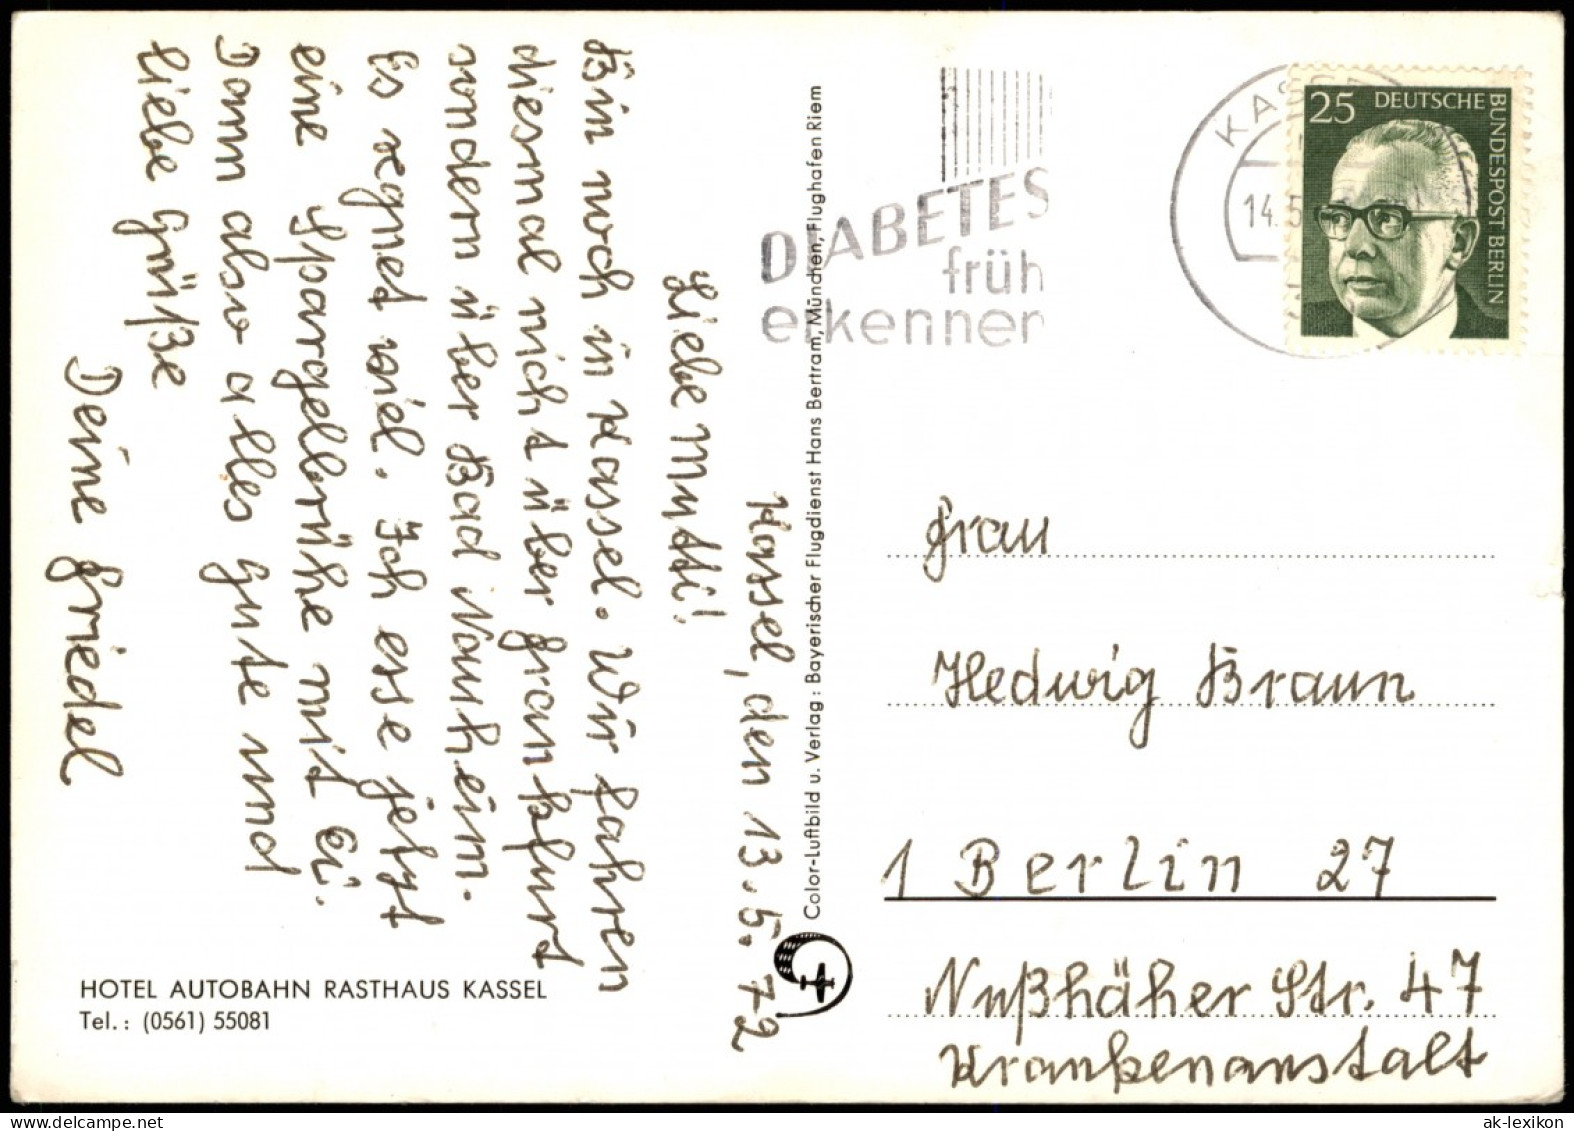 Kassel, den 13.5.72
Liebe Mutti!
Bin noch in Kassel. Wir fahren
diesmal nicht über Frankfurt
sondern über Bad Nauheim.
Es regnet viel. Ich esse jetzt
eine Spargelbrühe mit Ei.
Dann also alles Gute und
liebe Grüße
Deine Friedel
HOTEL AUTOBAHN RASTHAUS KASSEL
Tel.: (0561) 55081
Color-Luftbild u. Verlag: Bayerischer Flugdienst Hans Bertram, München, Flughafen Riem
DIABETES
früh
erkennen
KASS
14.5
25 DEUTSCHE BUNDESPOST BERLIN
Frau
Hedwig Braun
1 Berlin 27
Nußhäher Str. 47
Krankenanstalt
ak-lexikon